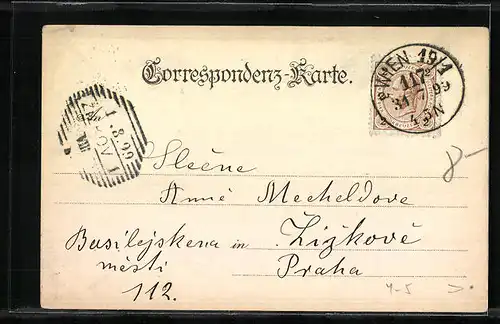 Correspondenz-Karte.
WIEN 19/1
117
31 7 99
4.5N
1.8.99
Slečne
Anně Mecheldove
Basilejskena in Žižkově
městi Praha
112.
8-